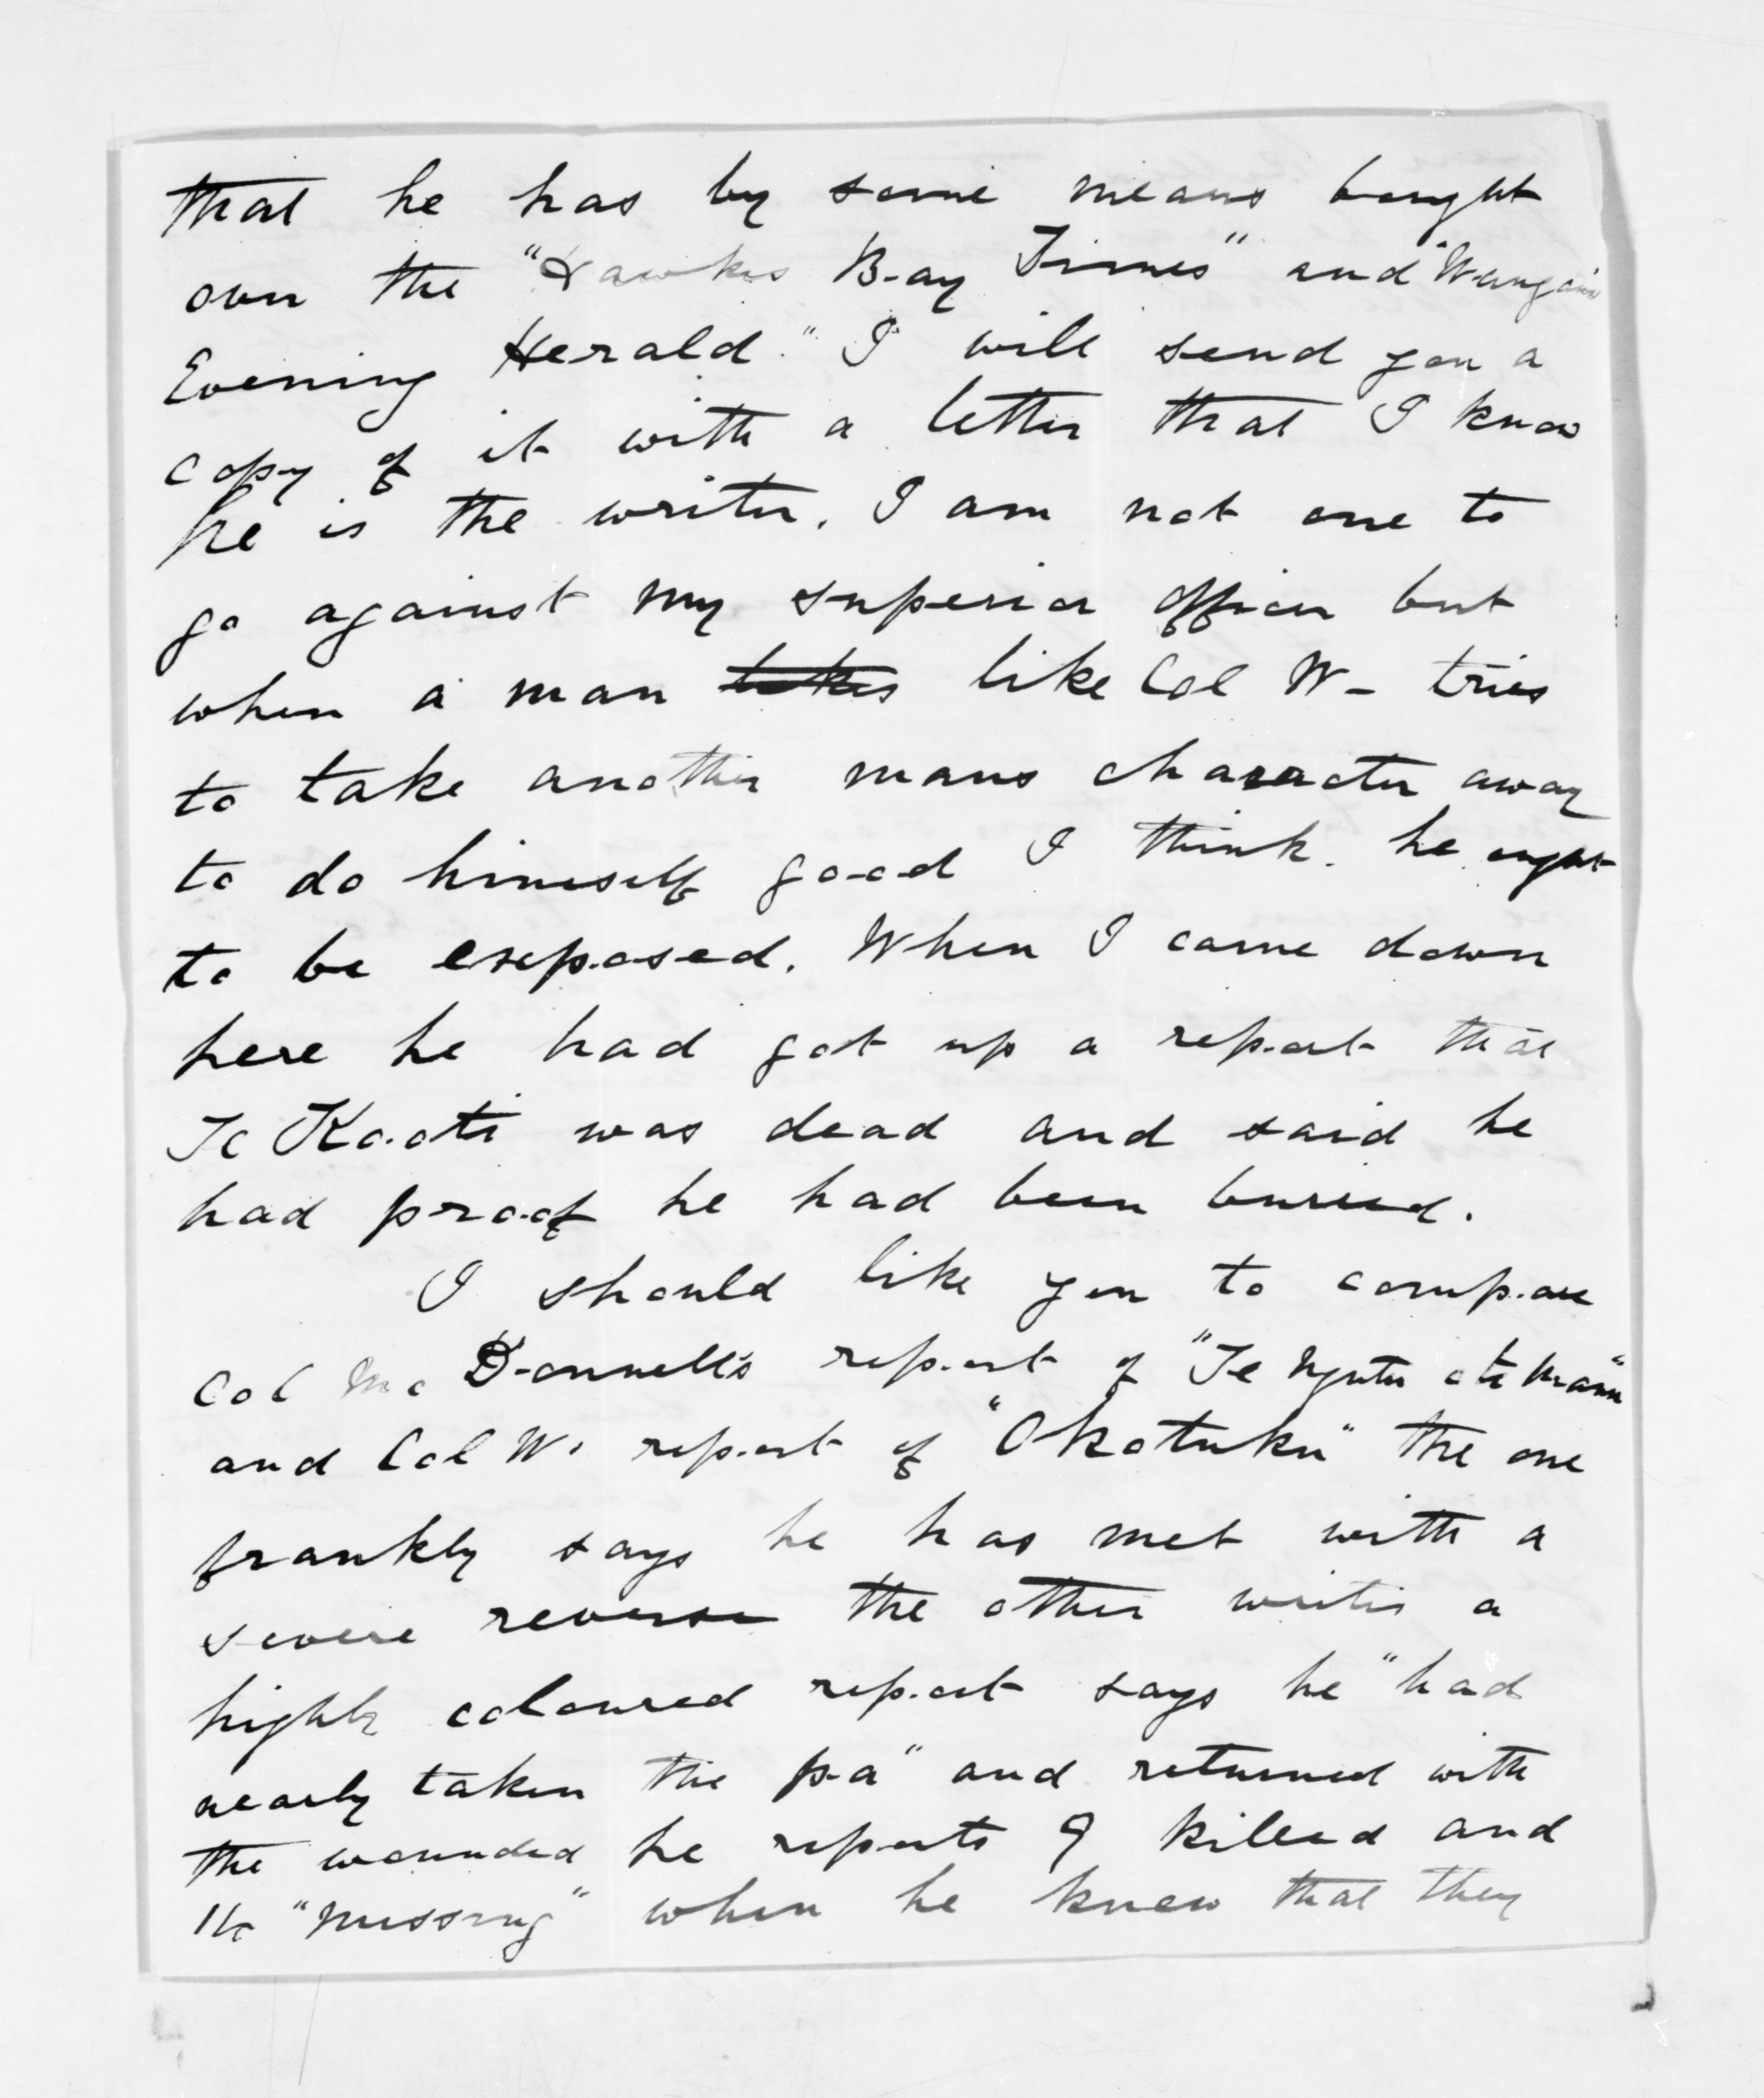 that he has by some means bought
over the "Hawkes Bay Times" and "Wanganui
Evening Herald." I will send you a
copy of it with a letter that I know
he is the writer. I am not one to
go against my superior officer but
when a man takes like Col W- tries
to take another mans character away
to do himself good I think he ought
to be exposed. When I came down
here he had got up a report that
Te Kooti was dead and said he
had proof he had been buried.
I should like you to compare
Col Mc Donnell's report of "Te Ngutu ote Manu"
and Col W. report of "Okotuku" the one
frankly says he has met with a
severe reverse the other writes a
highly coloured report says he "had
nearly taken the pa" and returned with
the wounded he reports 9 killed and
"missing" when he knew that they